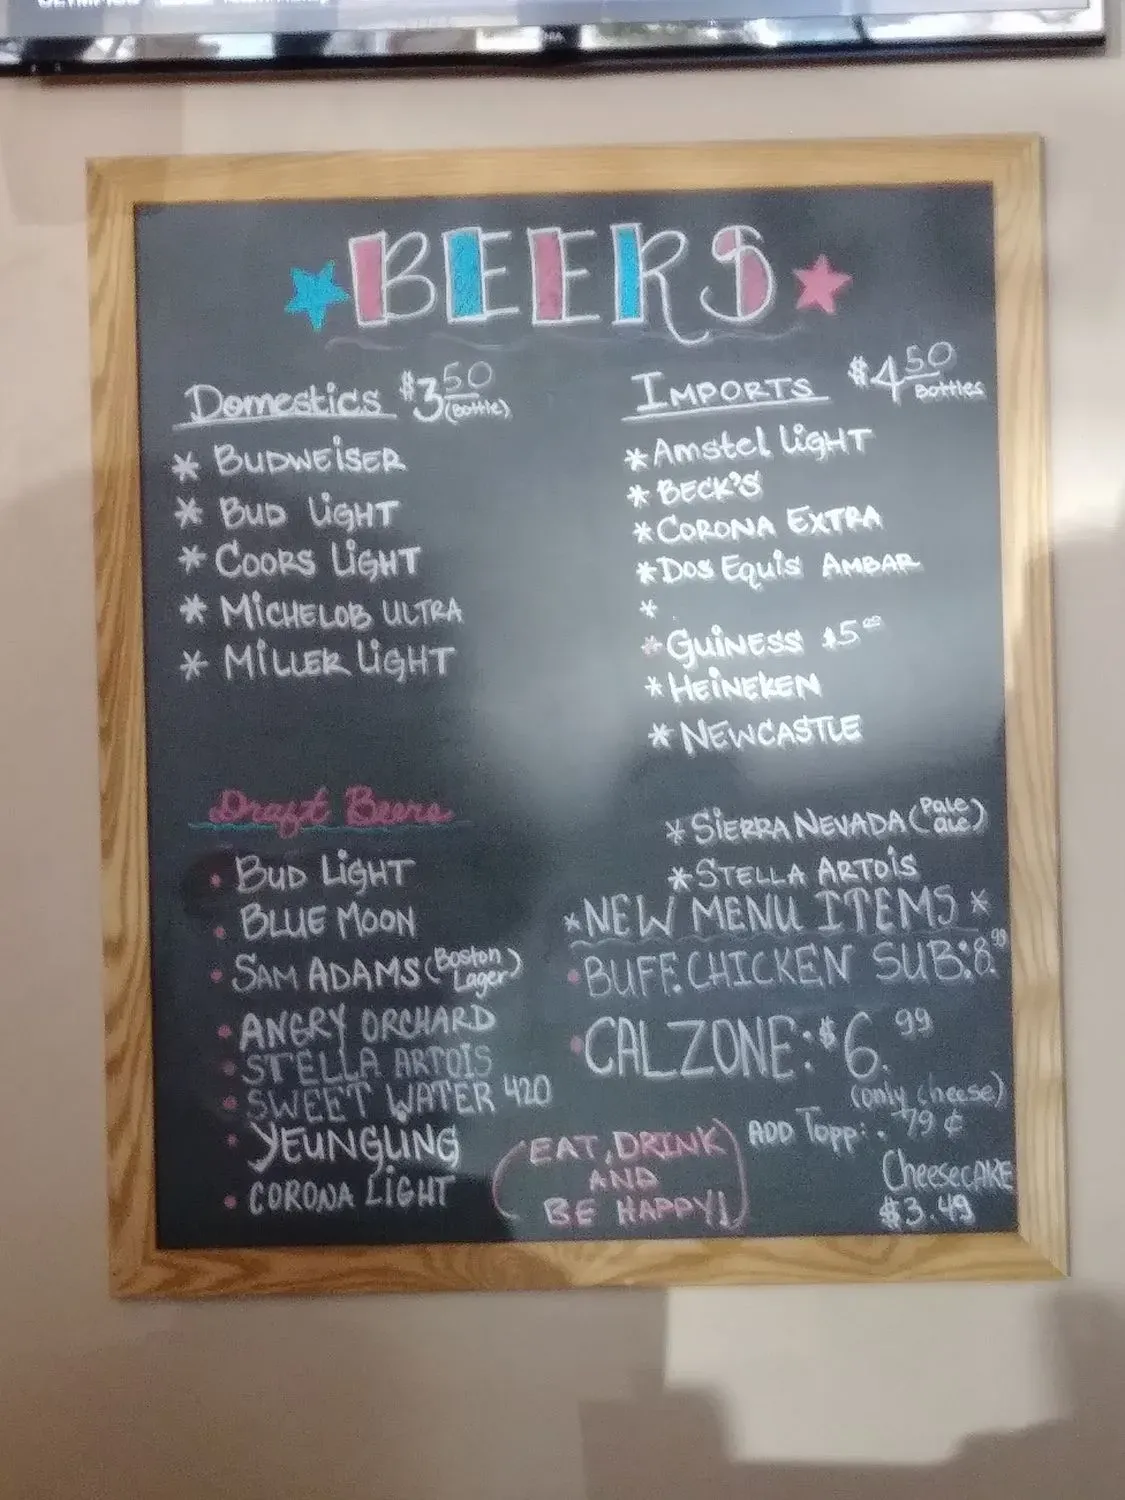 BEERS
Domestics $3.50
(Bottle)
* BUDWEISER
* BUD LIGHT
* COORS LIGHT
* MICHELOB ULTRA
* MILLER LIGHT
IMPORTS $4.50
Bottles
* Amstel LIGHT
* BECK'S
* CORONA EXTRA
* DOS EQUIS AMBAR
*
* GUINESS $5.00
* HEINEKEN
* NEWCASTLE
* SIERRA NEVADA (Pale ale)
* STELLA ARTOIS
Draft Beers
• BUD LIGHT
• BLUE MOON
• SAM ADAMS (Boston Lager)
• ANGRY ORCHARD
• STELLA ARTOIS
• SWEET WATER 420
• YEUNGLING
• CORONA LIGHT
*NEW MENU ITEMS*
• BUFF. CHICKEN SUB: 8.99
• CALZONE: $6.99
(only cheese)
ADD TOPP: . 79¢
CheeseCAKE
$3.49
EAT, DRINK
AND
BE HAPPY!